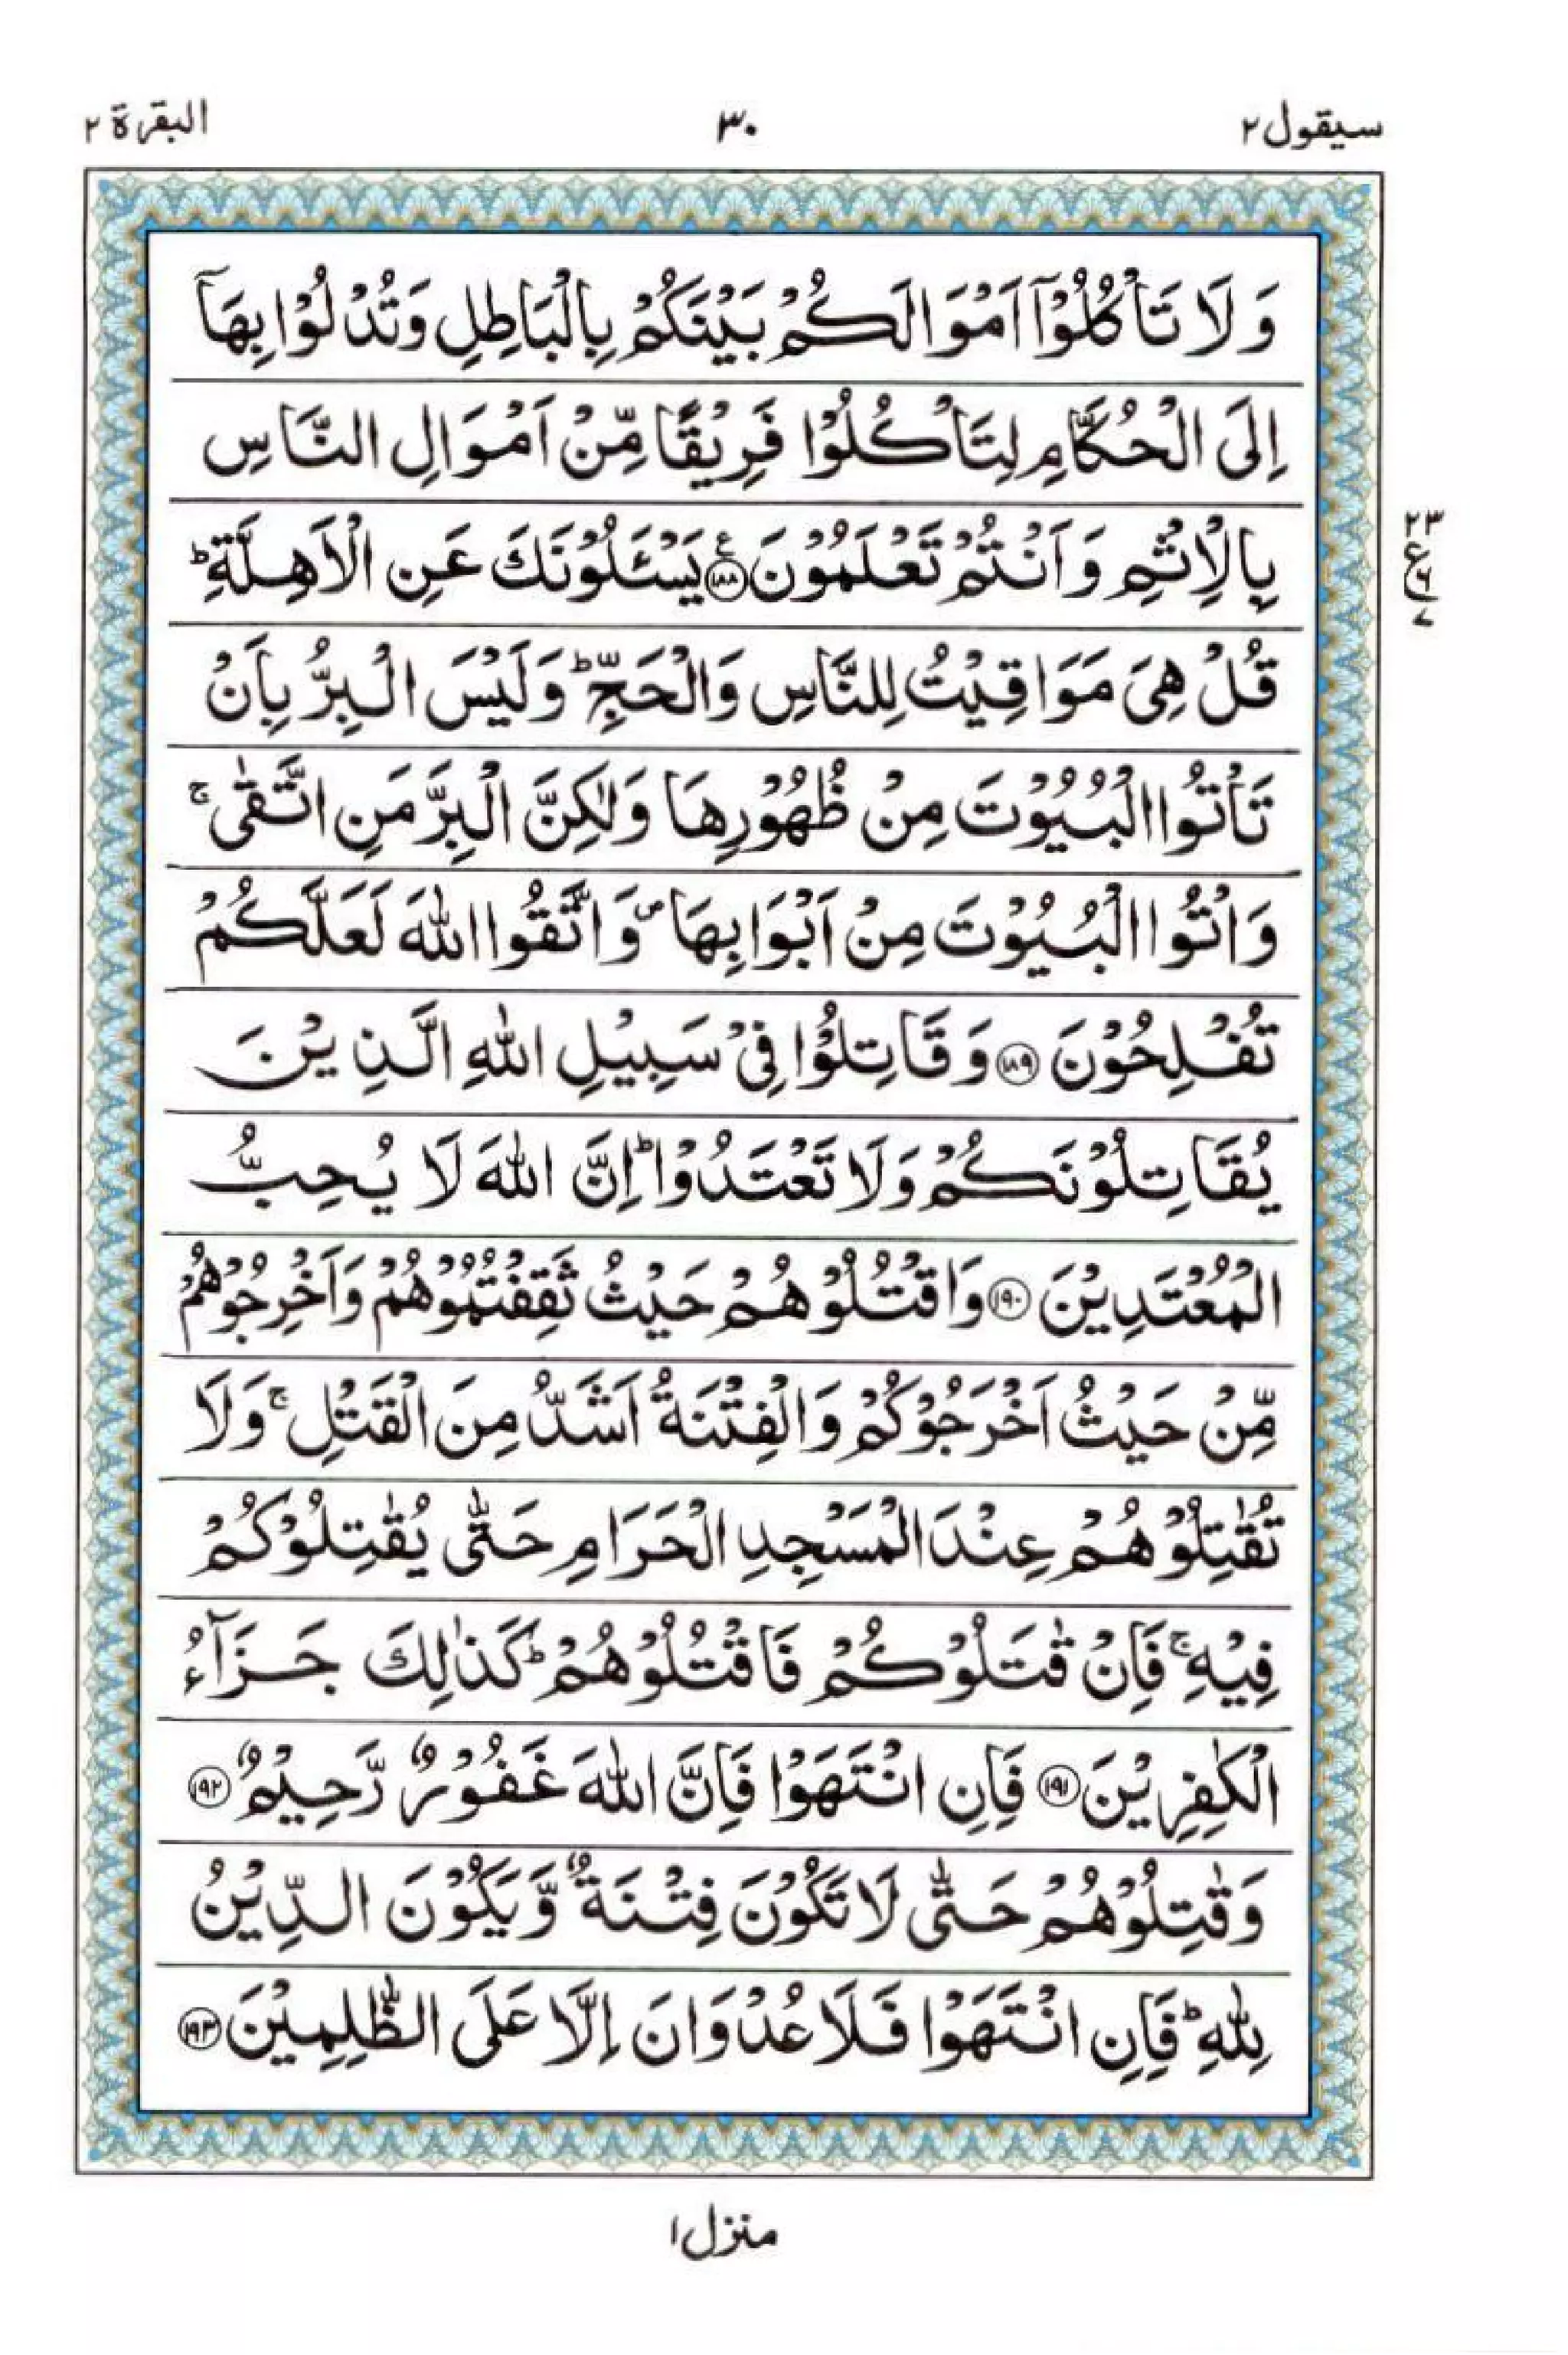 سيقول ٢
٣٠
البقرة ٢
وَلَا تَاْكُلُوْٓا اَمْوَالَكُمْ بَيْنَكُمْ بِالْبَاطِلِ وَتُدْلُوْا بِهَآ
اِلَى الْحُكَّامِ لِتَاْكُلُوْا فَرِيْقًا مِّنْ اَمْوَالِ النَّاسِ
بِالْاِثْمِ وَاَنْتُمْ تَعْلَمُوْنَ ۧ﴿١٨٨﴾ يَسْـَٔلُوْنَكَ عَنِ الْاَهِلَّةِ ؕ
قُلْ هِىَ مَوَاقِيْتُ لِلنَّاسِ وَالْحَجِّ ؕ وَلَيْسَ الْبِرُّ بِاَنْ
تَاْتُوا الْبُيُوْتَ مِنْ ظُهُوْرِهَا وَلٰكِنَّ الْبِرَّ مَنِ اتَّقٰى ۚ
وَاْتُوا الْبُيُوْتَ مِنْ اَبْوَابِهَا ۪ وَاتَّقُوا اللّٰهَ لَعَلَّكُمْ
تُفْلِحُوْنَ ﴿١٨٩﴾ وَقَاتِلُوْا فِىْ سَبِيْلِ اللّٰهِ الَّذِيْنَ
يُقَاتِلُوْنَكُمْ وَلَا تَعْتَدُوْا ؕ اِنَّ اللّٰهَ لَا يُحِبُّ
الْمُعْتَدِيْنَ ﴿١٩٠﴾ وَاقْتُلُوْهُمْ حَيْثُ ثَقِفْتُمُوْهُمْ وَاَخْرِجُوْهُمْ
مِّنْ حَيْثُ اَخْرَجُوْكُمْ وَالْفِتْنَةُ اَشَدُّ مِنَ الْقَتْلِ ۚ وَلَا
تُقٰتِلُوْهُمْ عِنْدَ الْمَسْجِدِ الْحَرَامِ حَتّٰى يُقٰتِلُوْكُمْ
فِيْهِ ۚ فَاِنْ قٰتَلُوْكُمْ فَاقْتُلُوْهُمْ ؕ كَذٰلِكَ جَزَآءُ
الْكٰفِرِيْنَ ﴿١٩١﴾ فَاِنِ انْتَهَوْا فَاِنَّ اللّٰهَ غَفُوْرٌ رَّحِيْمٌ ﴿١٩٢﴾
وَقٰتِلُوْهُمْ حَتّٰى لَا تَكُوْنَ فِتْنَةٌ وَّيَكُوْنَ الدِّيْنُ
لِلّٰهِ ؕ فَاِنِ انْتَهَوْا فَلَا عُدْوَانَ اِلَّا عَلَى الظّٰلِمِيْنَ ﴿١٩٣﴾
٢٣
ع
٦
٧
منزل ١